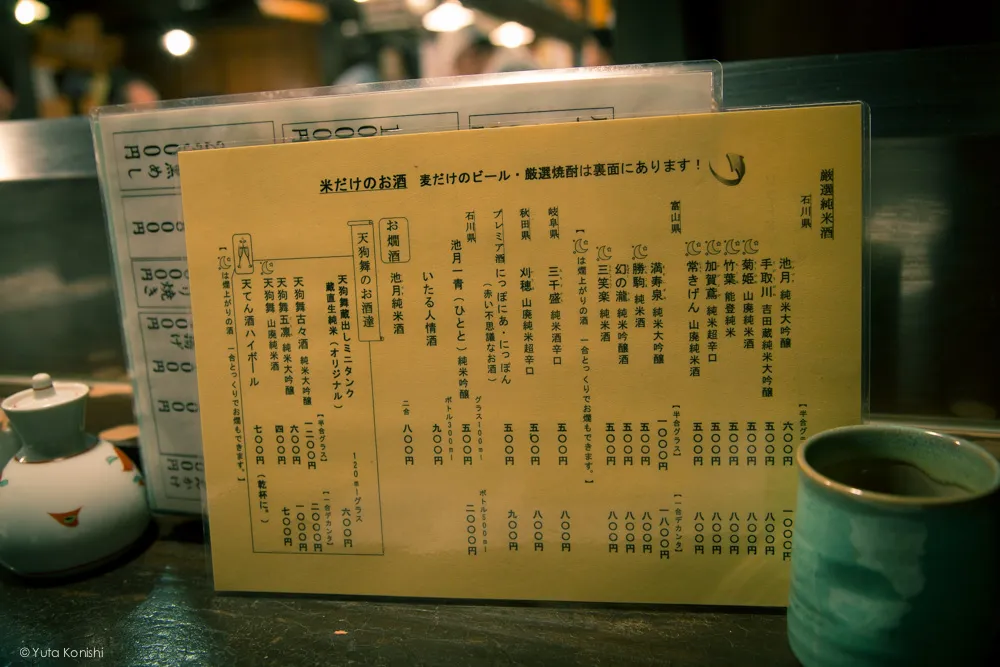 米だけのお酒 麦だけのビール・厳選焼酎は裏面にあります！
厳選純米酒
石川県
【半合グラス】
池月 純米大吟醸 六〇〇円 一〇〇〇円
手取川 吉田蔵純米大吟醸 五〇〇円 八〇〇円
菊姫 山廃純米酒 五〇〇円 八〇〇円
竹葉 能登純米 五〇〇円 八〇〇円
加賀鳶 純米超辛口 五〇〇円 八〇〇円
常きげん 山廃純米酒 五〇〇円 八〇〇円
富山県
【半合グラス】 【一合デカンタ】
満寿泉 純米大吟醸 一〇〇〇円 一八〇〇円
勝駒 純米酒 五〇〇円 八〇〇円
幻の瀧 純米吟醸酒 五〇〇円 八〇〇円
三笑楽 純米酒 五〇〇円 八〇〇円
【は燗上がりの酒 一合とっくりでお燗もできます。】
岐阜県
三千盛 純米酒辛口 五〇〇円 八〇〇円
秋田県
刈穂 山廃純米超辛口 五〇〇円 八〇〇円
プレミア酒 にっぽにあ・にっぽん 五〇〇円 九〇〇円
（赤い不思議なお酒）
グラス100ml ボトル500ml
石川県
池月一青（ひとと）純米吟醸 五〇〇円 二〇〇〇円
ボトル300ml
いたる人情酒 九〇〇円
お燗酒
二合
池月純米酒 八〇〇円
天狗舞のお酒達
120mlグラス
天狗舞蔵出しミニタンク
蔵直生純米（オリジナル） 六〇〇円
【半合グラス】 【一合デカンタ】
天狗舞古々酒 純米大吟醸 一二〇〇円 二〇〇〇円
天狗舞五凛 純米大吟醸 六〇〇円 一〇〇〇円
天狗舞 山廃純米酒 四〇〇円 七〇〇円
天てん酒ハイボール 七〇〇円（乾杯に。）
【は燗上がりの酒 一合とっくりでお燗もできます。】
©Yuta Konishi